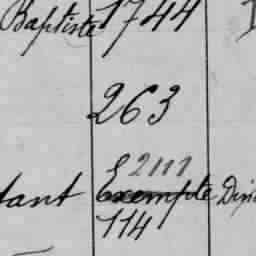 Baptiste 1744
263
2111
tant Exempte Dis
114